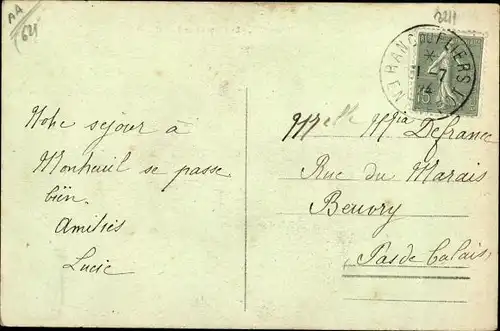 AA
621
3211
RANG DU FLIERS
31 -7
14
15c
Notre séjour à
Montreuil se passe
bien.
Amitiés
Lucie
Melle Mia Defrance
Rue du Marais
Beuvry
Pas de Calais